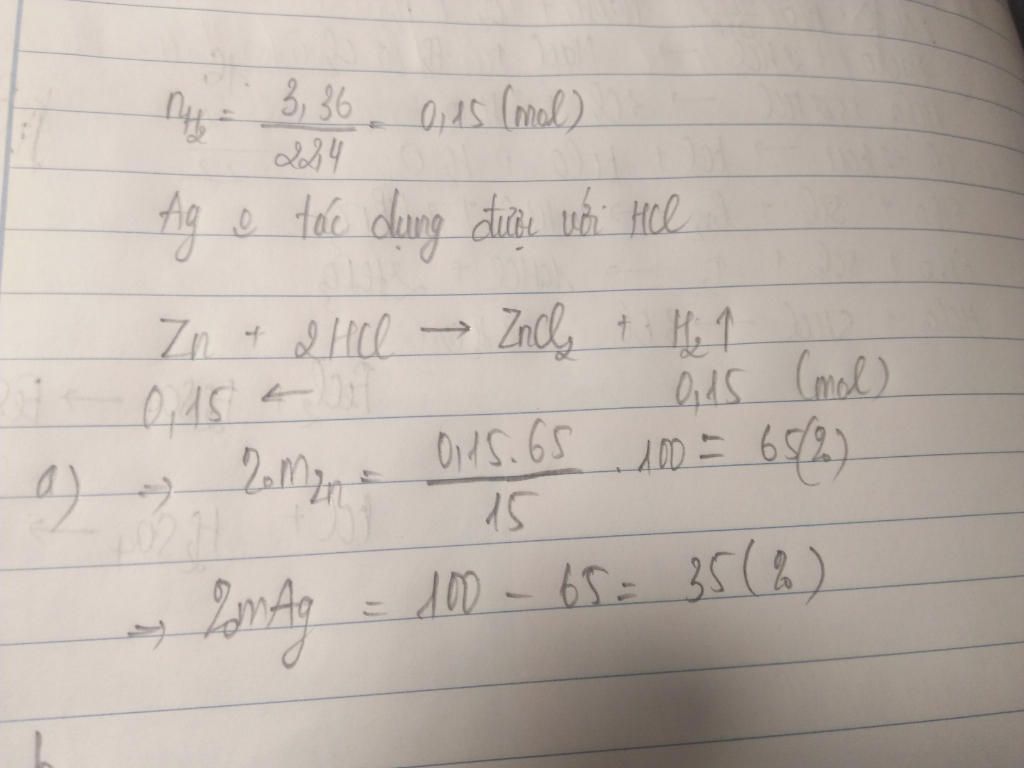 nH2 = 3,36 / 22,4 = 0,15 (mol)
Ag o tác dụng được với HCl
Zn + 2HCl → ZnCl2 + H2↑
0,15 ← 0,15 (mol)
a) ⇒ %mZn = 0,15.65 / 15 . 100 = 65(%)
⇒ %mAg = 100 - 65 = 35(%)
b